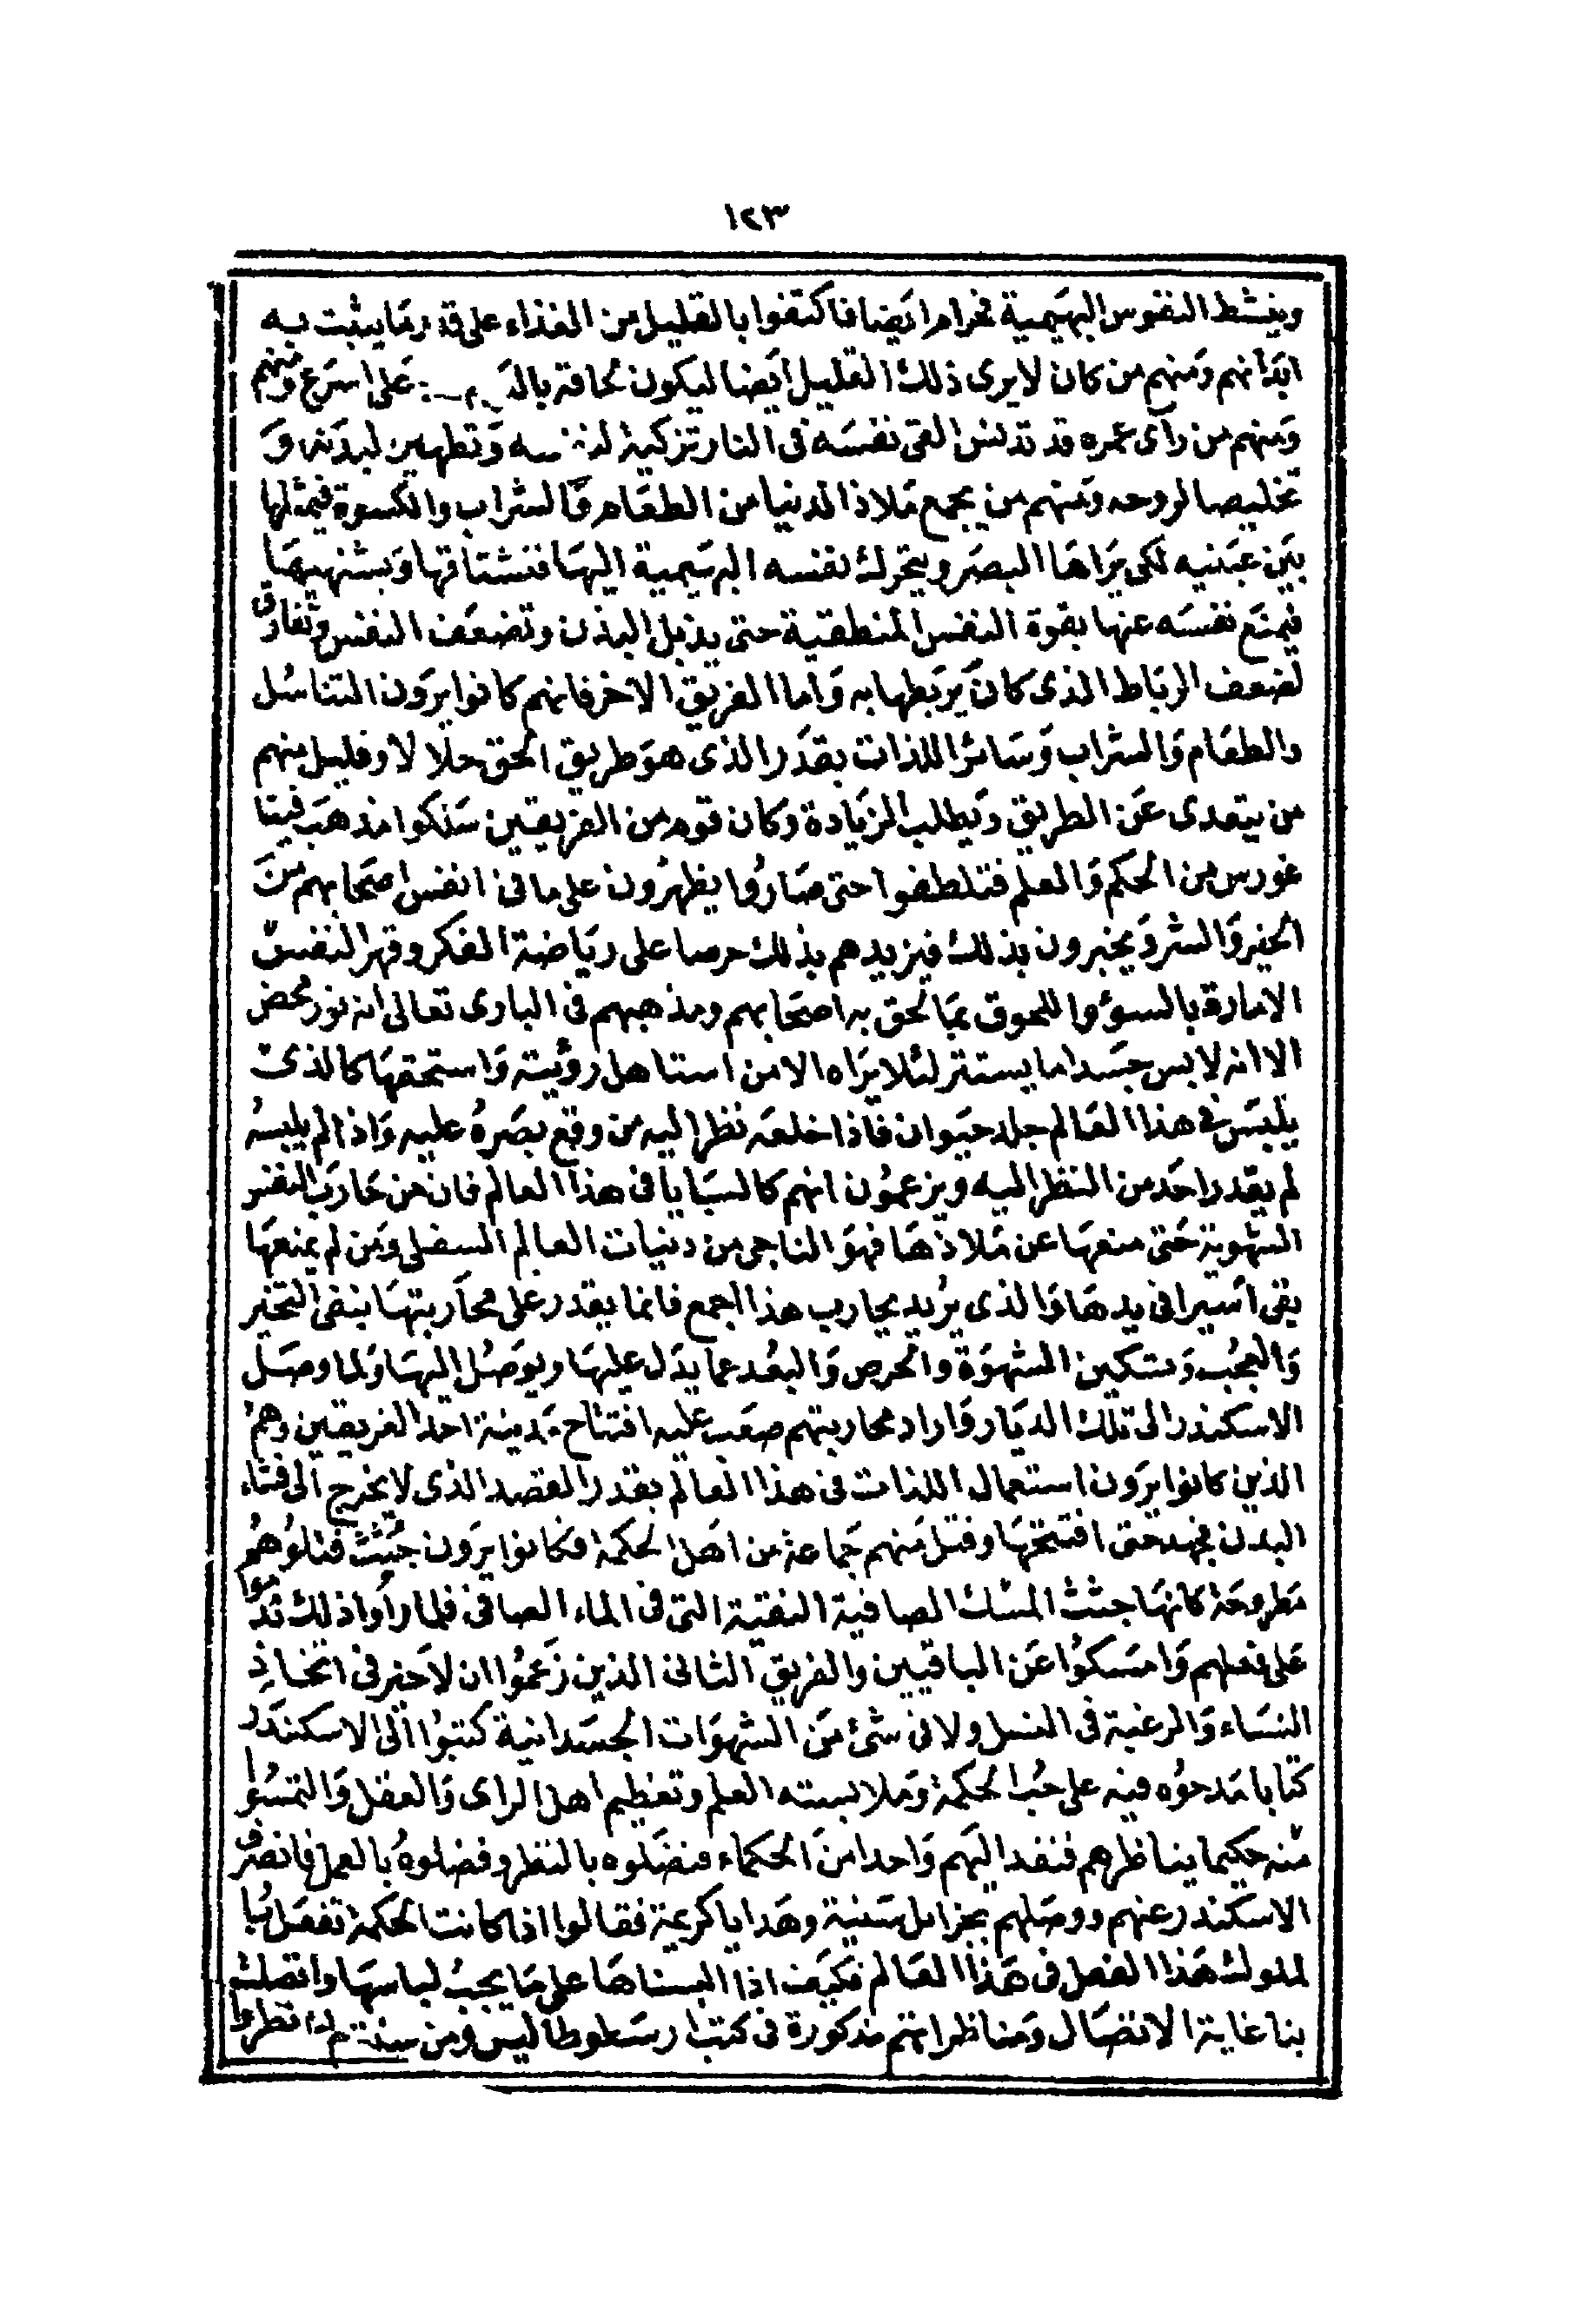 ١٢٣
وينشط النفوس البهيمية فحرام ايضا فاكتفوا بالقليل من الغذاء على قدر ما يثبت به
ابدانهم ومنهم من كان لا يرى ذلك القليل ايضا ليكون لحاقه على اسرع ومنهم
ومنهم من رأى عمره قد تدنس القى نفسه فى النار تزكية لنفسه وتطهير لبدنه و
تخليصا لروحه ومنهم من يجمع ملاذ الدنيا من الطعام والشراب والكسوة فيمثلها
بين عينيه لكى يراها البصر ويتحرك نفسه البهيمية اليها فتشتاقها ويشتهيها
فيمنع نفسه عنها بقوة النفس المنطقية حتى يذبل البدن وتضعف النفس وتفارق
لضعف الرباط الذى كان يربطها به واما الفريق الاخر فانهم كانوا يرون التناسل
والطعام والشراب وسائر اللذات بقدر الذى هو طريق الحق حلالا وقليل منهم
من يتعدى عن الطريق ويطلب الزيادة وكان قوم من الفريقين سلكوا مذهب فيثا
غورس من الحكم والعلم فتلطفوا حتى صاروا يظهرون على ما فى انفس اصحابهم من
الخير والشر ويخبرون بذلك فيزيدهم بذلك حرصا على رياضة الفكر وقهر النفس
الامارة بالسوء واللحوق بما لحق به اصحابهم ومذهبهم فى البارى تعالى انه نور محض
الا انه لابس جسدا ما يستتر لئلا يراه الا من استاهل رؤيته واستحقها كالذى
يلبس فى هذا العالم جلد حيوان فاذا خلعه نظر اليه من وقع بصره عليه واذا لم يلبسه
لم يقدر احد من النظر اليه ويزعمون انهم كالسبايا فى هذا العالم فان من حارب النفس
الشهوية حتى منعها عن ملاذها فهو الناجى من دنيات العالم السفلى ومن لم يمنعها
بقى اسيرا فى يدها والذى يريد يحارب هذا اجمع فانما يقدر على محاربتها بنفى التجبر
والعجب وتسكين الشهوة والحرص والبعد عما يدل عليها ويوصل اليها ولما وصل
الاسكندر الى تلك الديار واراد محاربتهم صعب عليه افتتاح مدينة احد الفريقين وهم
الذين كانوا يرون استعمال اللذات فى هذا العالم بقدر القصد الذى لا يخرج الى فساد
البدن فجهد حتى افتتحها وقتل منهم جماعة من اهل الحكمة فكانوا يرون جثث قتلوهم
مطروحة كانها جثث السمك الصافية النقية التى فى الماء الصافى فلما رأوا ذلك ندموا
على فعلهم وامسكوا عن الباقيين والفريق الثانى الذين زعموا ان لا خير فى اتخاذ
النساء والرغبة فى النسل ولا فى شئ من الشهوات الجسدانية كتبوا الى الاسكندر
كتابا مدحوه فيه على حب الحكمة وملابسته العلم وتعظيم اهل الراى والعقل والتمسوا
منه حكيما يناظرهم فنفد اليهم واحدا من الحكماء فنضلوه بالنظر وفضلوه بالعمل فانصرف
الاسكندر عنهم ووصلهم بجزايل سنية وهدايا كريمة فقالوا اذا كانت الحكمة تفعل با
لملوك هذا الفعل فى هذا العالم فكيف اذا البسناها على ما يجب لباسها واتصلت
بنا غاية الاتصال ومناظراتهم مذكورة فى كتب ارسطوطاليس ومن سنتهم اذا نظروا